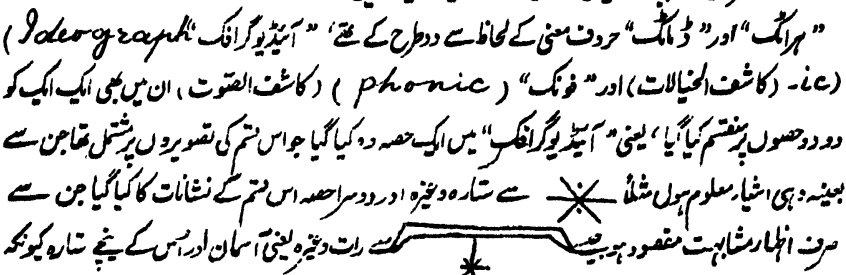 ”ہراٹک“ اور” ڈماٹک“ حروف معنی کے لحاظ سے دو طرح کے تھے، ”آئیڈیوگرافک“ (Ideograph
ic- (کاشف الخیالات) اور ”فونک“ (phonic) (کاشف الصّوت) ان میں بھی ایک ایک کو
دو دو حصوں پر منقسم کیا گیا، یعنی ”آئیڈیوگرافک“ میں ایک حصہ وہ کیا گیا جو اس قسم کی تصویروں پر مشتمل تھا جن سے
بعینہ وہی اشیار معلوم ہوں مثلاً سے ستارہ وغیرہ اور دوسرا حصہ اس قسم کے نشانات کا کیا گیا جن سے
صرف اظہار مشابہت مقصود ہو جیسے سے رات وغیرہ یعنی آسمان اور اُس کے نیچے ستارہ کیونکہ